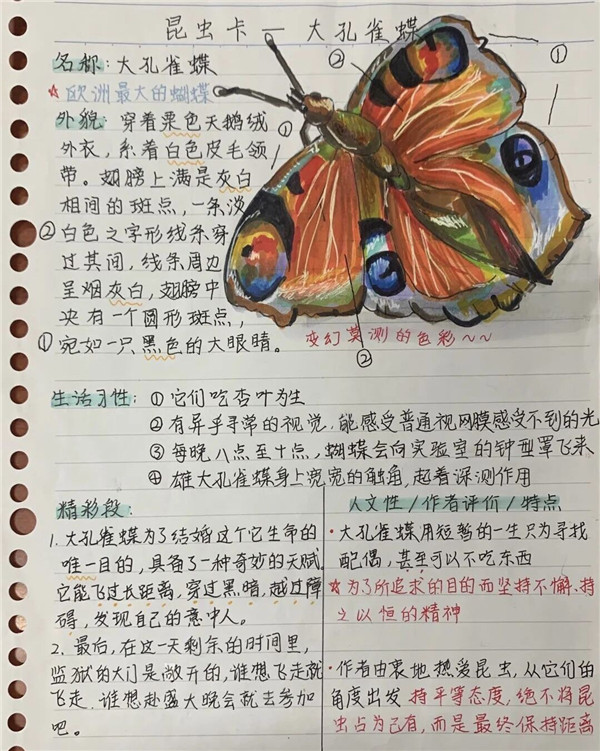 昆虫卡 — 大孔雀蝶
名称: 大孔雀蝶
☆ 欧洲最大的蝴蝶
外貌: 穿着栗色天鹅绒
外衣, 系着白色皮毛领
带。翅膀上满是灰白
相间的斑点, 一条淡
②白色之字形线条穿
过其间, 线条周边
呈烟灰白, 翅膀中
央有一个圆形斑点,
①宛如一只黑色的大眼睛。
②
①
①
②
变幻莫测的色彩~~
生活习性: ①它们吃杏叶为生
②有异乎寻常的视觉, 能感受普通视网膜感受不到的光
③每晚八点至十点, 蝴蝶会向实验室的钟型罩飞来
④雄大孔雀蝶身上宽宽的触角, 起着深测作用
精彩段:
1. 大孔雀蝶为了结婚这个它生命的
唯一目的, 具备了一种奇妙的天赋。
它能飞过长距离, 穿过黑暗, 越过障
碍, 发现自己的意中人。
2. 最后, 在这一天剩余的时间里,
监狱的大门是敞开的, 谁想飞走就
飞走, 谁想赴盛大晚会就去参加
吧。
人文性/作者评价/特点
·大孔雀蝶用短暂的一生只为寻找
配偶, 甚至可以不吃东西
☆为了所追求的目的而坚持不懈、持
之以恒的精神
·作者由衷地热爱昆虫, 从它们的
角度出发 持平等态度, 绝不将昆
虫占为己有, 而是最终保持距离